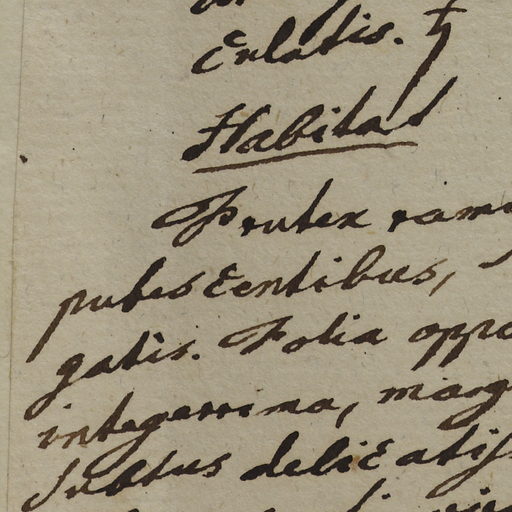 Enlatis. ♄
Habitat
Frutex ram
pubescentibus,
gatis. Folia oppo
integerrima, marg
subtus delicatiſ